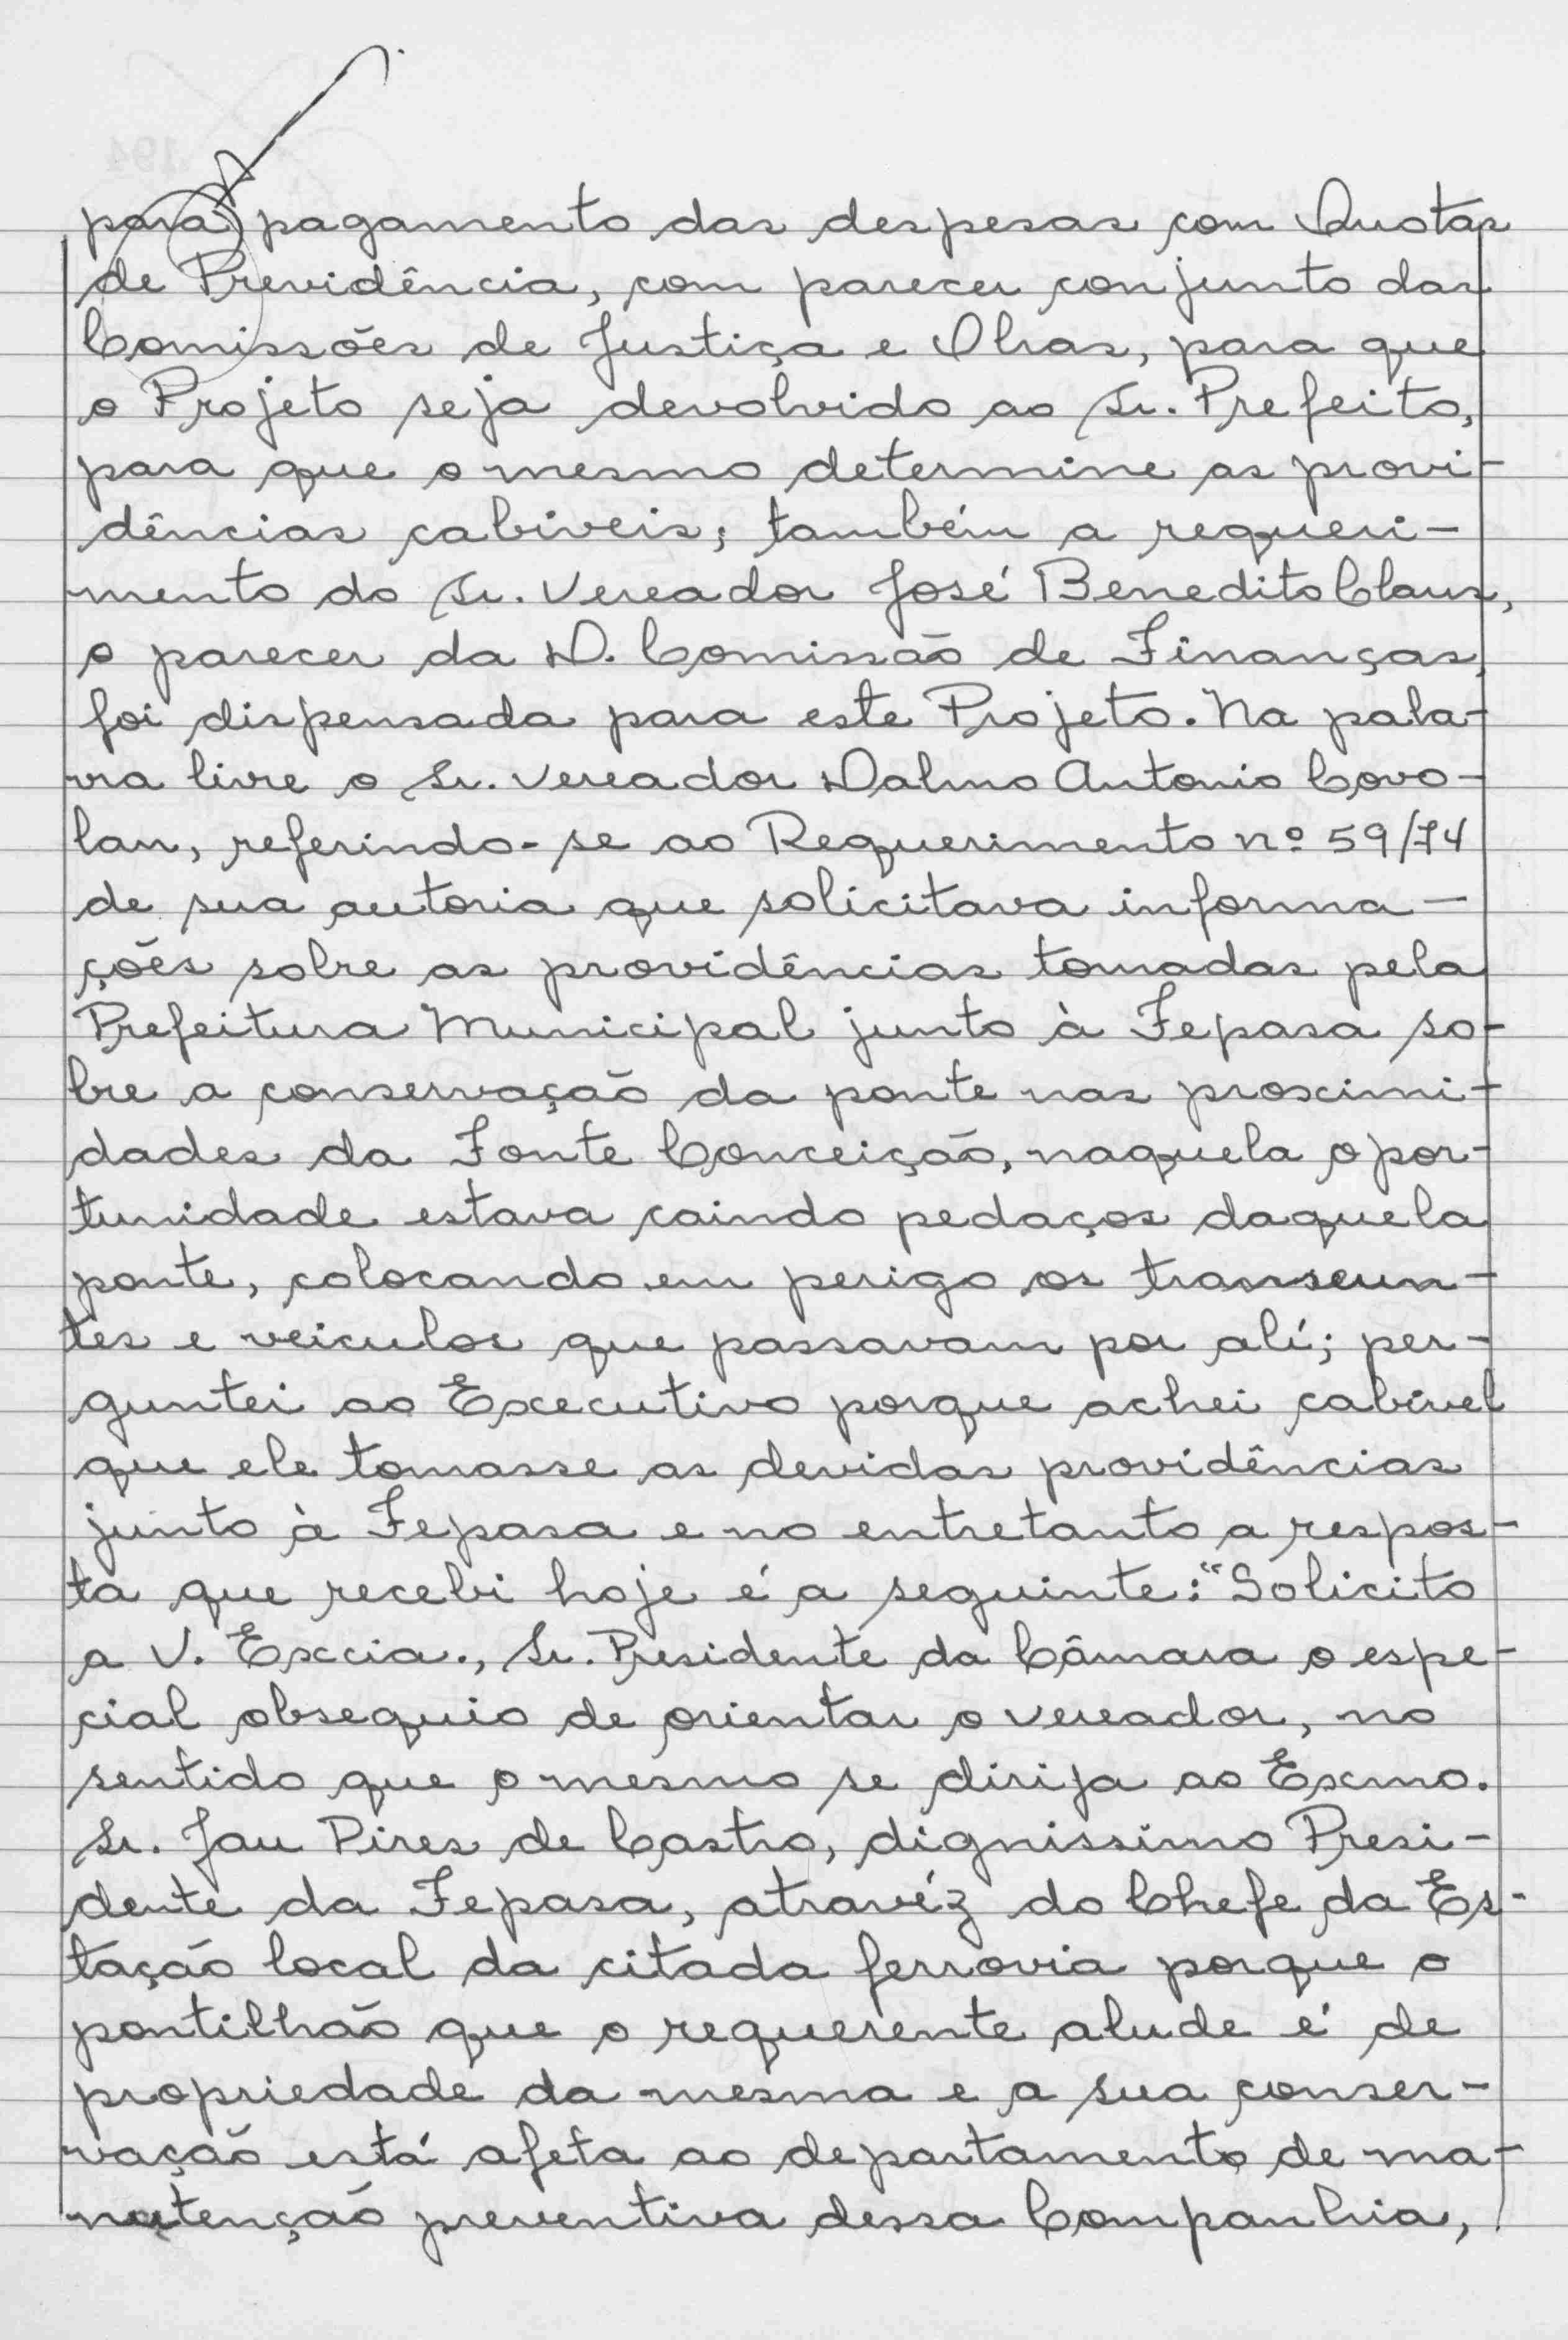 para pagamento das despesas com Quotas
de Previdência, com parecer conjunto das
Comissões de Justiça e Obras, para que
o Projeto seja devolvido ao Sr. Prefeito,
para que o mesmo determine as provi-
dências cabiveis; também a requeri-
mento do Sr. Vereador José Benedito Claus,
o parecer da D. Comissão de Finanças,
foi dispensada para este Projeto. Na pala-
vra livre o Sr. Vereador Dalmo Antonio Covo-
lan, referindo-se ao Requerimento nº 59/74
de sua autoria que solicitava informa-
ções sobre as providências tomadas pela
Prefeitura Municipal junto à Fepasa so-
bre a conservação da ponte nas proximi-
dades da Fonte Conceição, naquela opor-
tunidade estava caindo pedaços daquela
ponte, colocando em perigo os transeun-
tes e veiculos que passavam por alí; per-
guntei ao Executivo porque achei cabível
que ele tomasse as devidas providências
junto à Fepasa e no entretanto a respos-
ta que recebi hoje é a seguinte: "Solicito
a V. Excia., Sr. Presidente da Câmara o espe-
cial obsequio de orientar o vereador, no
sentido que o mesmo se dirija ao Exmo.
Sr. Jau Pires de Castro, dignissimo Presi-
dente da Fepasa, atravéz do Chefe da Es-
tação local da citada ferrovia porque o
pontilhão que o requerente alude é de
propriedade da mesma e a sua conser-
vação está afeta ao departamento de ma-
nutenção preventiva dessa Companhia,